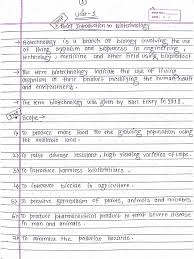 Unit-1
Brief Introduction to Biotechnology
→ Biotechnology is a branch of biology involving the use
of living organism and bioprocess in engineering,
technology, medicine and other field using bioproduct
→ The term biotechnology indicate the use of living
organism or their product modifying the human health
and environment.
→ The term biotechnology was given by Karl Erkey in 1919.
Scope →
1) To produce more food for the growing population using
the available land.
2) To raise disease resistant, high yielding varieties of crops.
3) To introduce harmless biofertilizers.
4) To introduce biocide in agriculture.
5) To preserve germplasm of plants, animals and microbes
6) To produce pharmaceutical product to treat severe disease
in man and animals.
7) To minimize the pollution hazards.